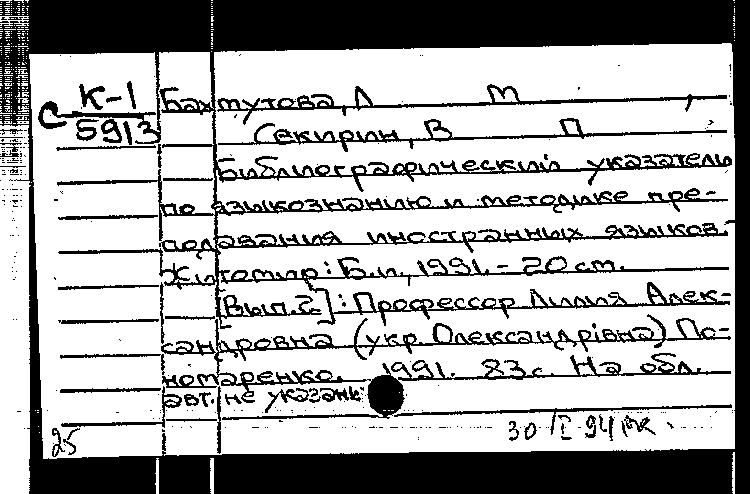 С К-1
5913
Бахмутова, Л М ,
Секирин, В П
Библиографический указатель
по языкознанию и методике пре-
подавания иностранных языков.-
Житомир: Б.и., 1991.- 20 см.
[Вып.2]: Профессор Лилия Алек-
сандровна (укр. Олександрiвна) По-
номаренко. 1991. 83 с. На обл.
авт. не указаны
25
30/I 94